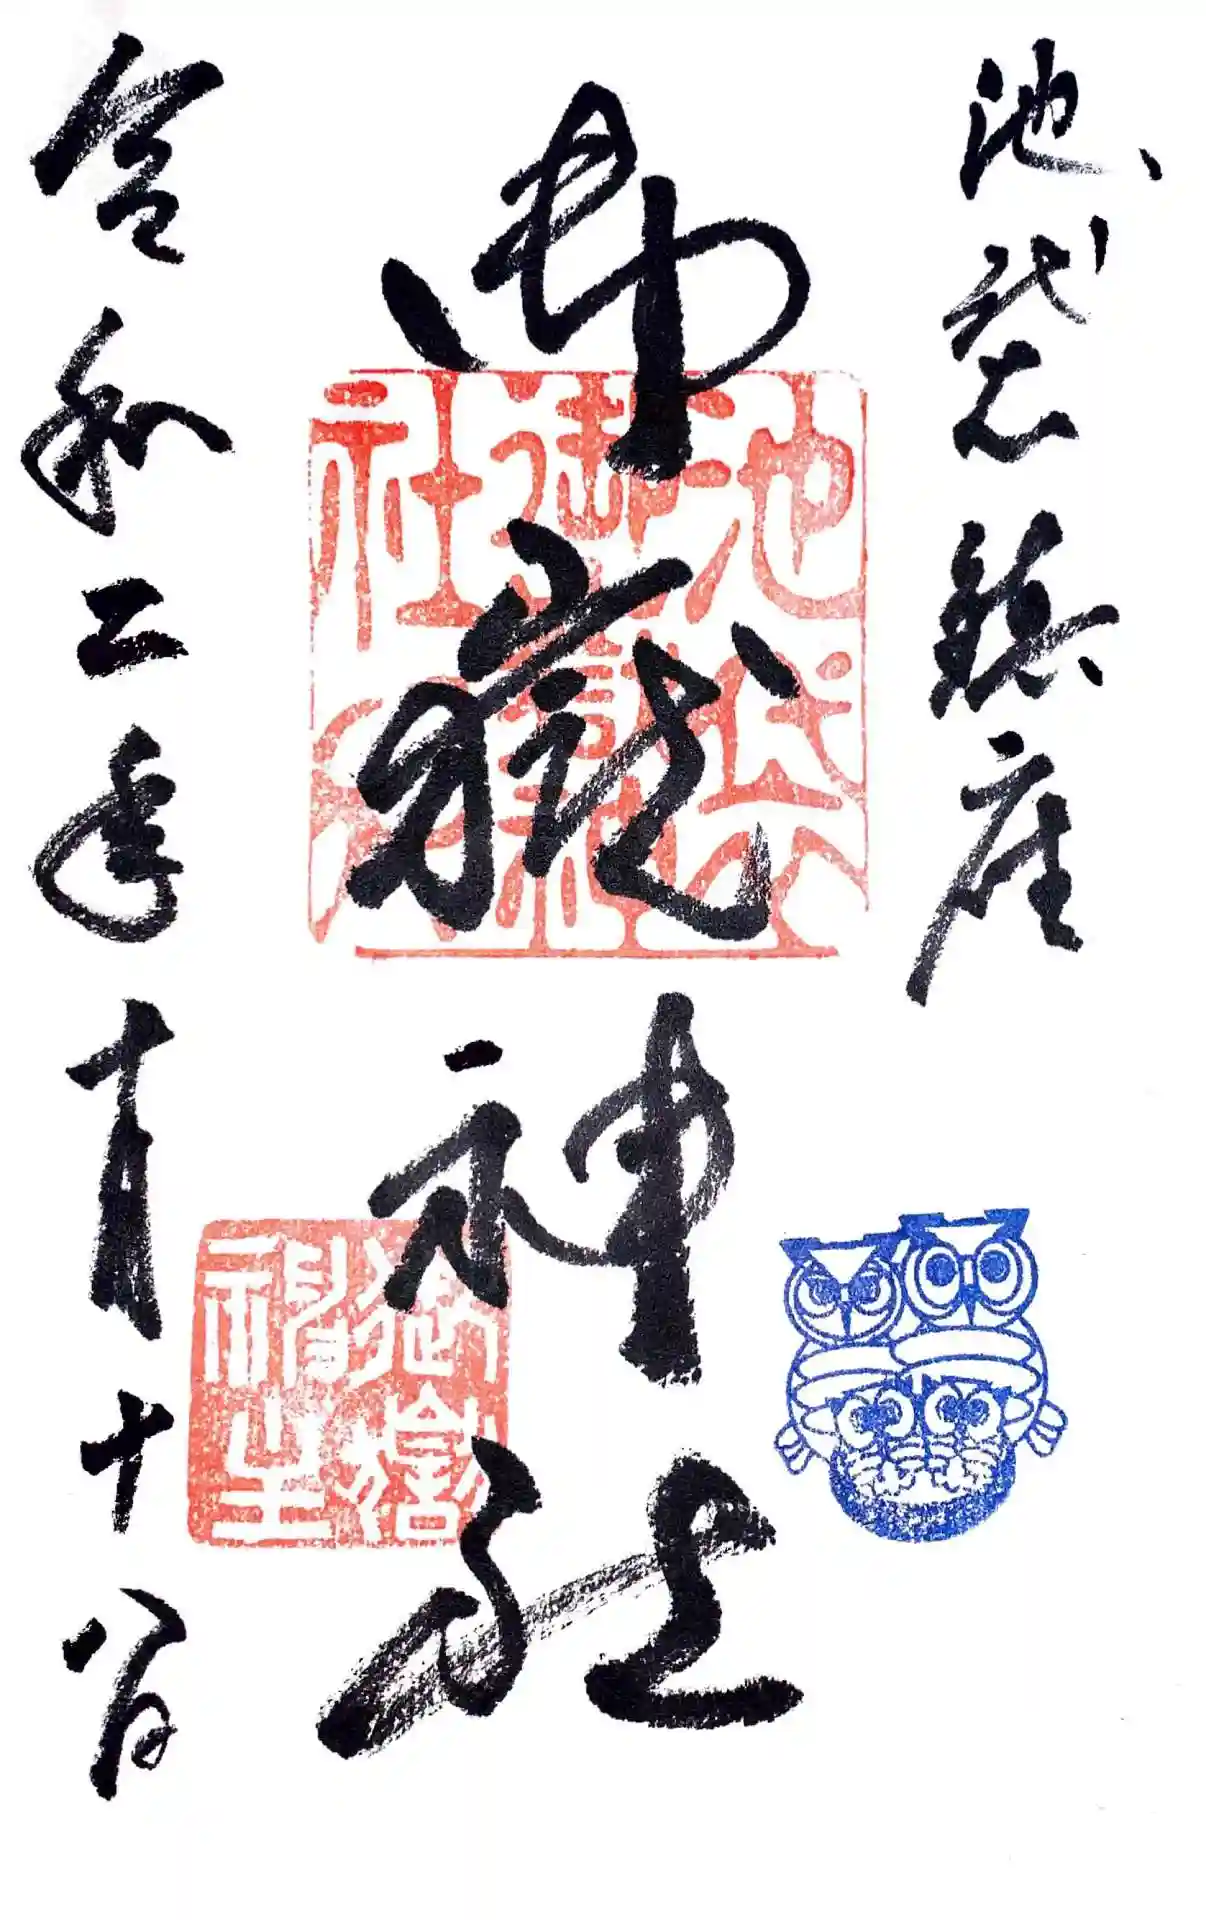 池袋鎮座
御嶽神社
令和二年十月十八日
池袋
御嶽神
社之印